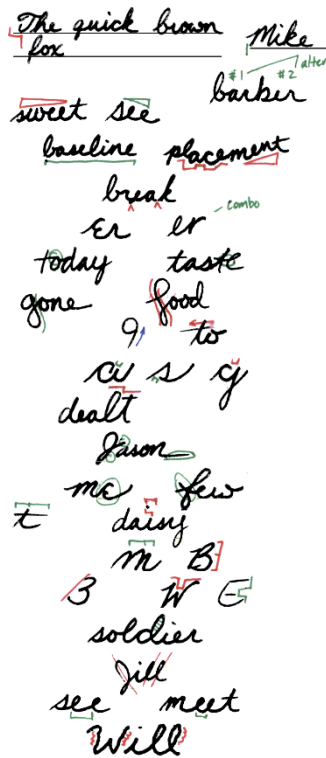 The quick brown
fox
Mike
alter
#1 #2
barber
sweet see
baseline placement
break
Er er
combo
today taste
gone food
9 to
a s g
dealt
Jason
me few
t daisy
m B
3 W E
soldier
Jill
see meet
Will